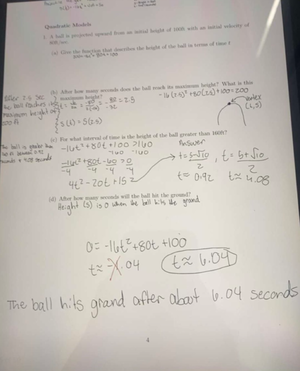 Quadratic Models
1. A ball is projected upward from an initial height of 100ft with an initial velocity of
80ft/sec.
(a) Give the function that describes the height of the ball in terms of time t
(b) After how many seconds does the ball reach its maximum height? What is this
maximum height?
After 2.5 sec
the ball reaches its
maximum height of
t = = 2.5
S(2.5)
-16(2.5)² + 80(2.5) + 100 = 200
vertex
(c) For what interval of time is the height of the ball greater than 160ft?
The ball is greater than
-16t² + 80t + 100 > 160
-160 -160
-16t² + 80t - 60 > 0
-4 -4 -4 -4
4t² - 20t + 15
Answer
t = 5-√10 / 2 , t = 5+√10 / 2
t ≈ 0.92 t ≈ 4.08
(d) After how many seconds will the ball hit the ground?
Height (s) is 0 when the ball hits the ground
0 = -16t² + 80t + 100
t ≈ -1.04 t ≈ 6.04
The ball hits ground after about 6.04 seconds